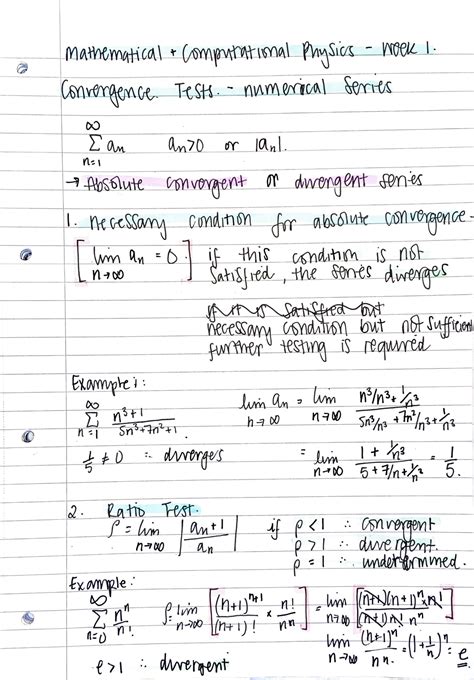 Mathematical + Computational Physics - Week 1.
Convergence Tests. - numerical Series
∞
Σ an   an>0 or |an|.
n=1
→ Absolute convergent or divergent series
1. necessary condition for absolute convergence -
[ lim an = 0 ] if this condition is not
n→∞ satisfied, the series diverges
if it is satisfied but
necessary condition but not sufficient
further testing is required
Example 1:
∞
Σ (n³+1)/(5n³+7n²+1)   lim an = lim (n³/n³ + 1/n³)/(5n³/n³ + 7n²/n³ + 1/n³)
n=1   n→∞   n→∞
1/5 ≠ 0 ∴ diverges   = lim (1 + 1/n³)/(5 + 7/n + 1/n³) = 1/5.
n→∞
2. Ratio Test.
ρ = lim |an+1/an|   if ρ < 1 ∴ convergent
n→∞   ρ > 1 ∴ divergent.
ρ = 1 ∴ undetermined.
Example:
∞
Σ nⁿ/n!   ρ = lim [(n+1)ⁿ⁺¹/(n+1)! × n!/nⁿ] = lim [(n+1)(n+1)ⁿ n!/(n+1)n! nⁿ]
n=0   n→∞   n→∞
lim (n+1)ⁿ/nⁿ = (1+1/n)ⁿ = e
n→∞
ρ>1 ∴ divergent